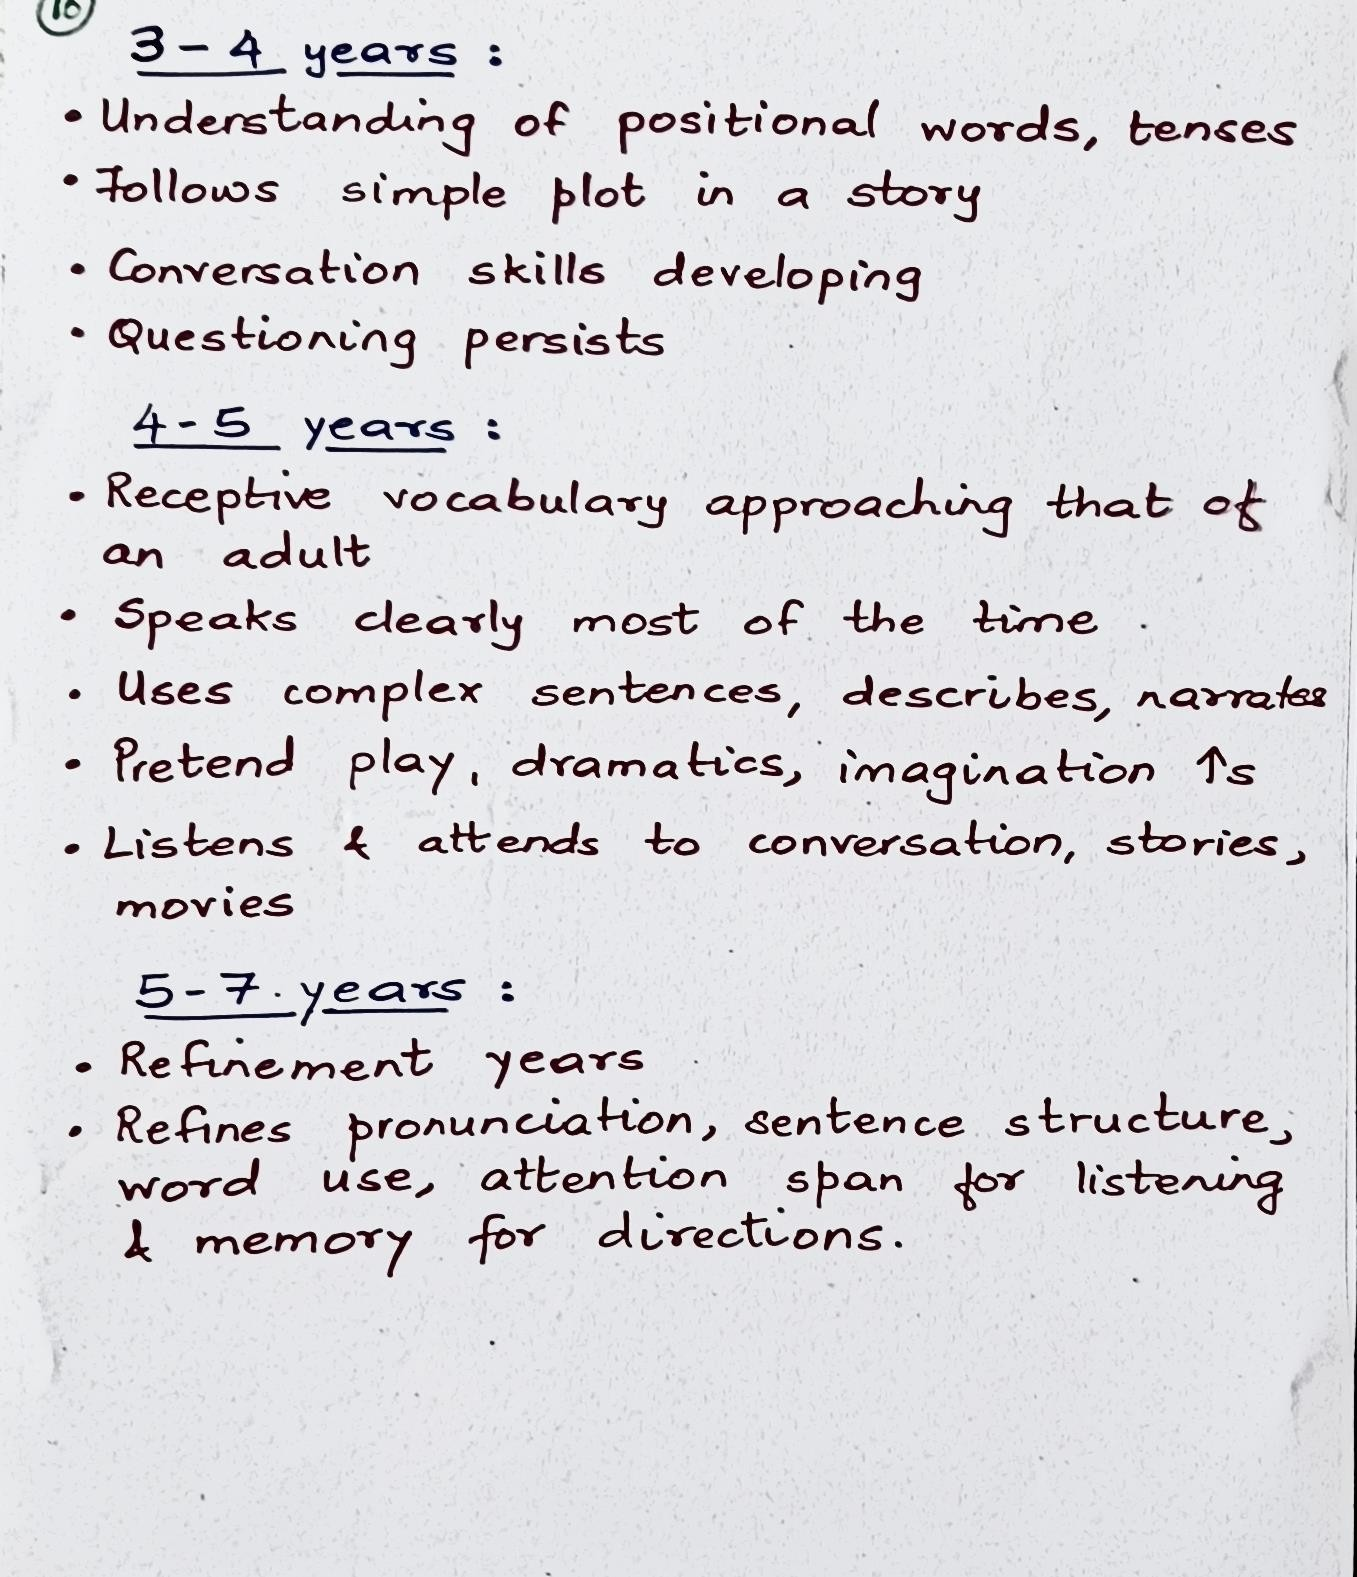 10
3-4 years :
• Understanding of positional words, tenses
• Follows simple plot in a story
• Conversation skills developing
• Questioning persists
4-5 years :
• Receptive vocabulary approaching that of
an adult
• Speaks clearly most of the time
• Uses complex sentences, describes, narrates
• Pretend play, dramatics, imagination ↑s
• Listens & attends to conversation, stories,
movies
5-7 years :
• Refinement years
• Refines pronunciation, sentence structure,
word use, attention span for listening
& memory for directions.